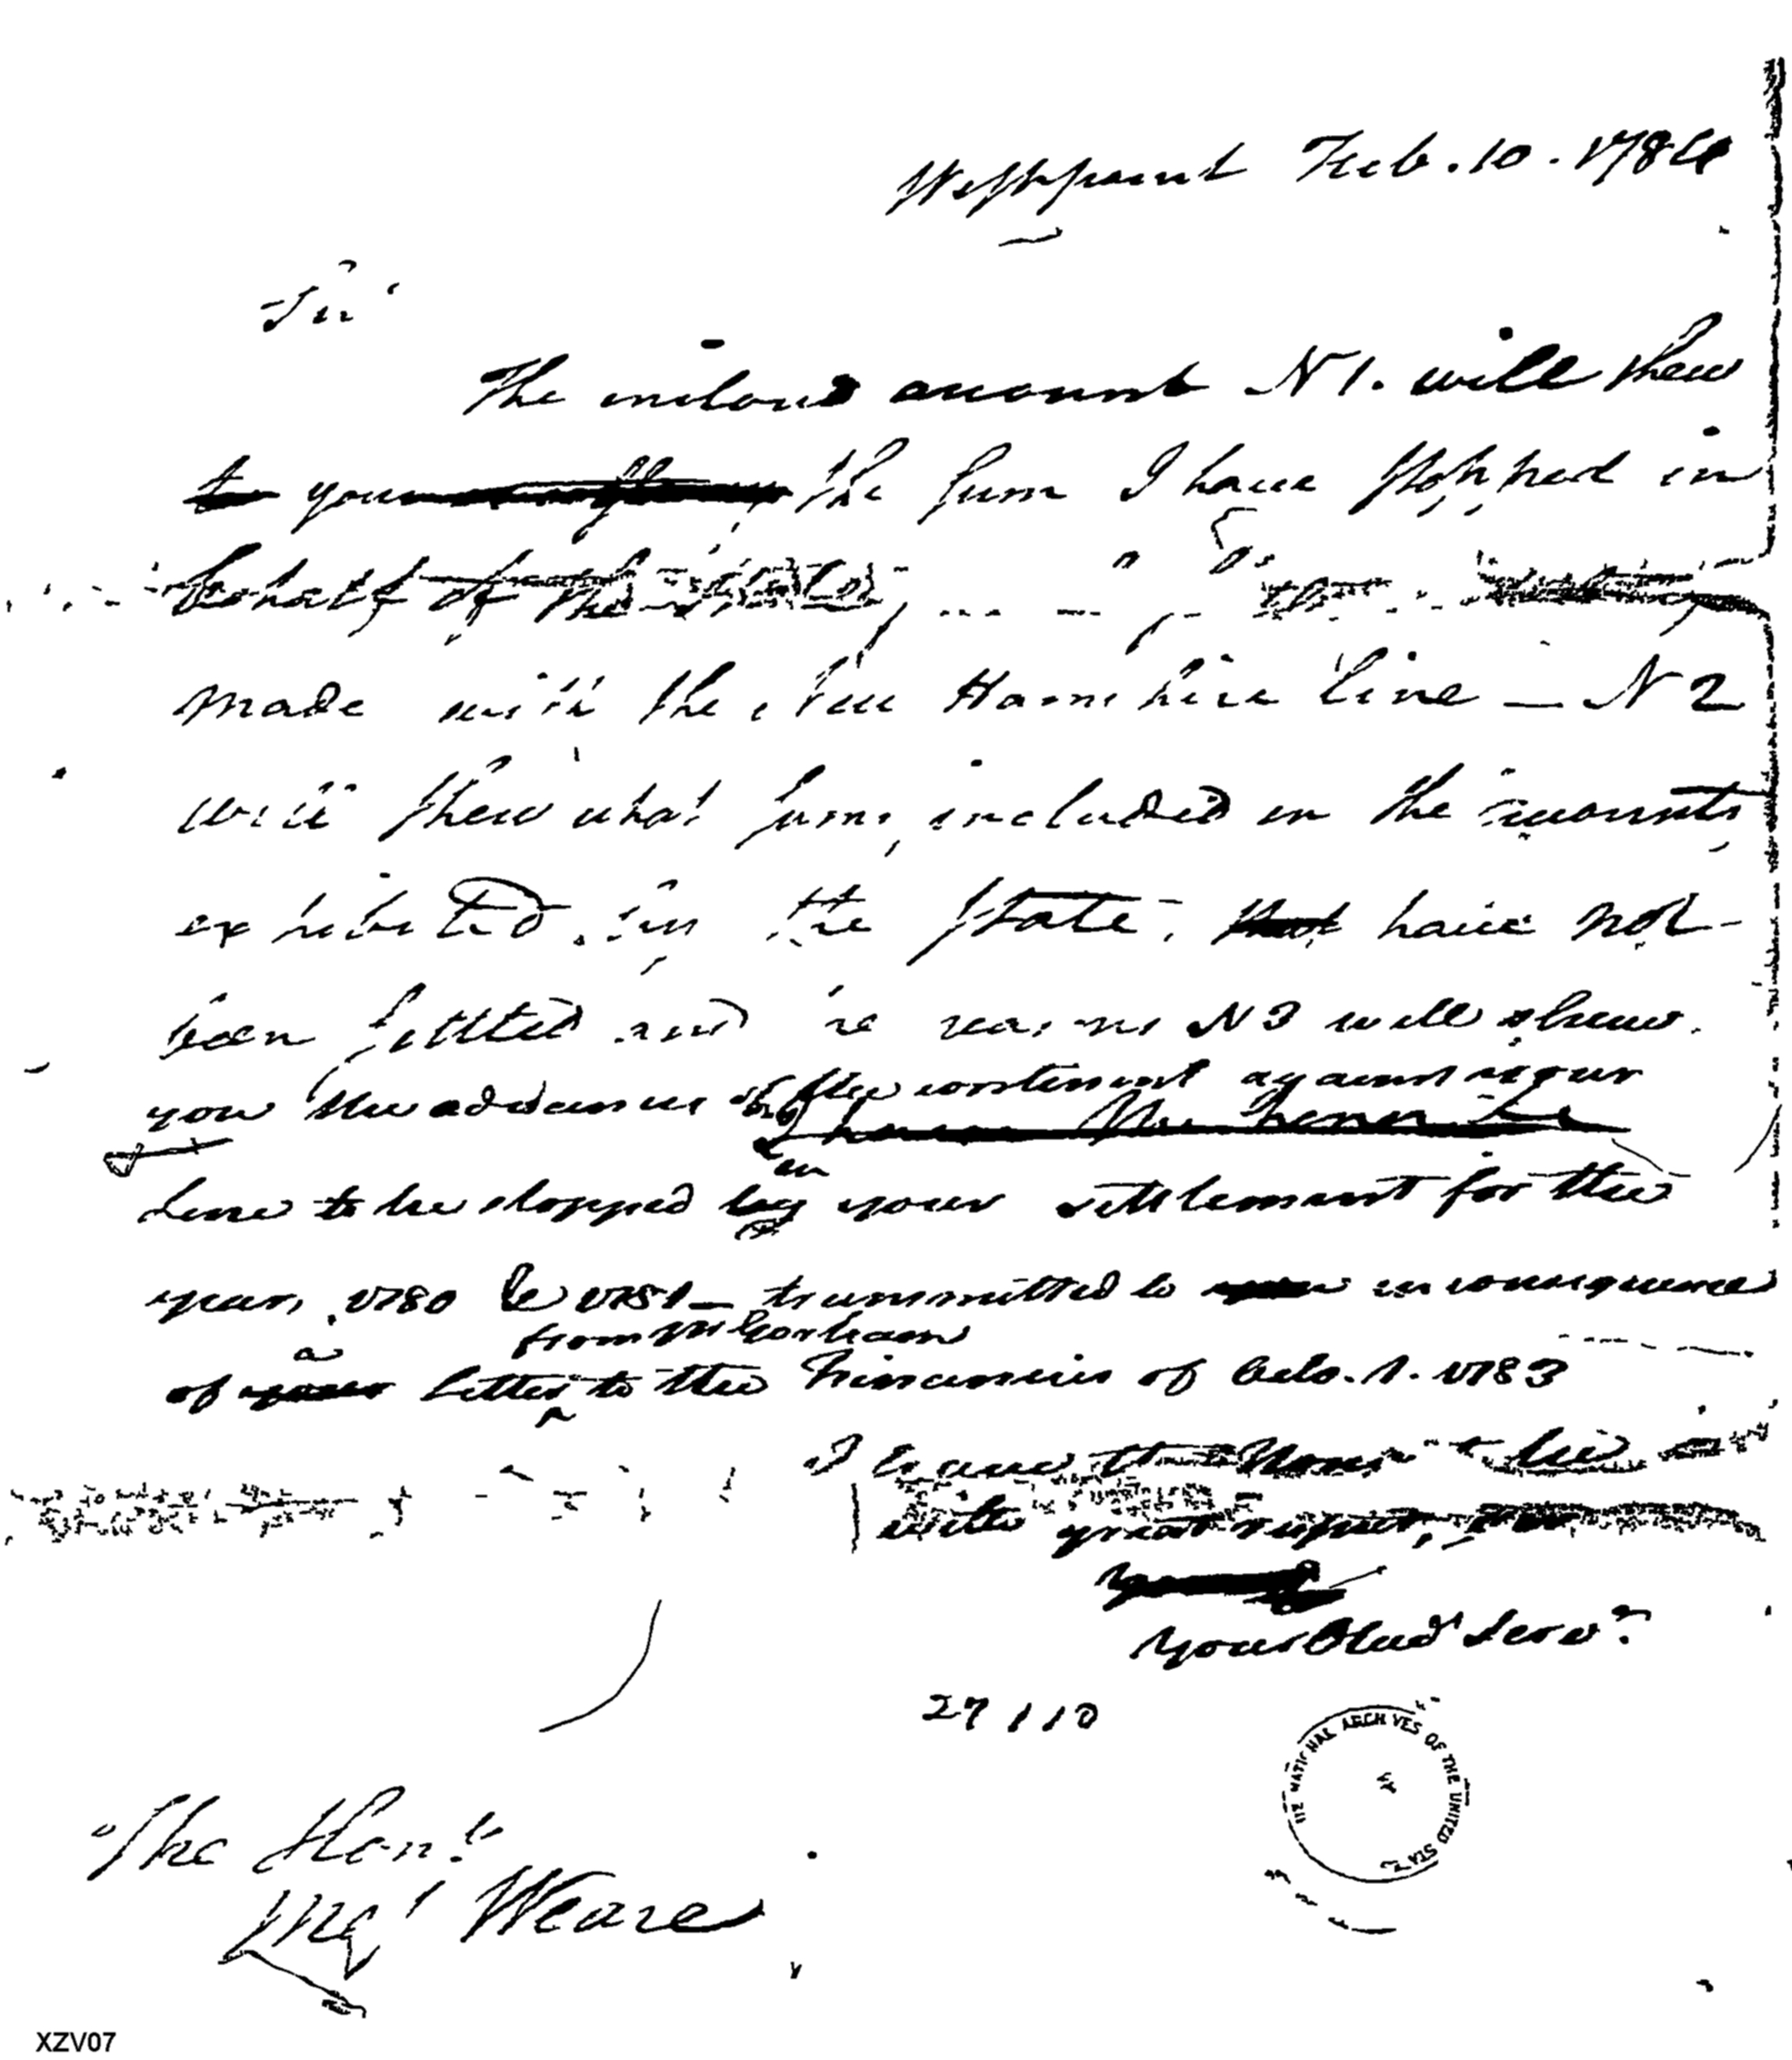 Westpoint Feb. 10. 1784
Sir
The inclosd account N 1. will shew
to you the sum I have stopped in
behalf of the
made with the New Hamshire line — N 2
will shew what sums included in the accounts
exhibited by the State, that have not
been settled and reasons N 3 will shew
you the advances of the continent against your
have the honor to
line to be stopped by in your settlement for the
years 1780 & 1781 — transmitted to in consequence
from Mr Gorham
of your a letter to the Financier of Octo. 1. 1783
I have the Honor to be
with great respect,
your Obed Serv.t
27110
THE NATIONAL ARCHIVES OF THE UNITED STATES
The Hon.l
Weare
XZV07